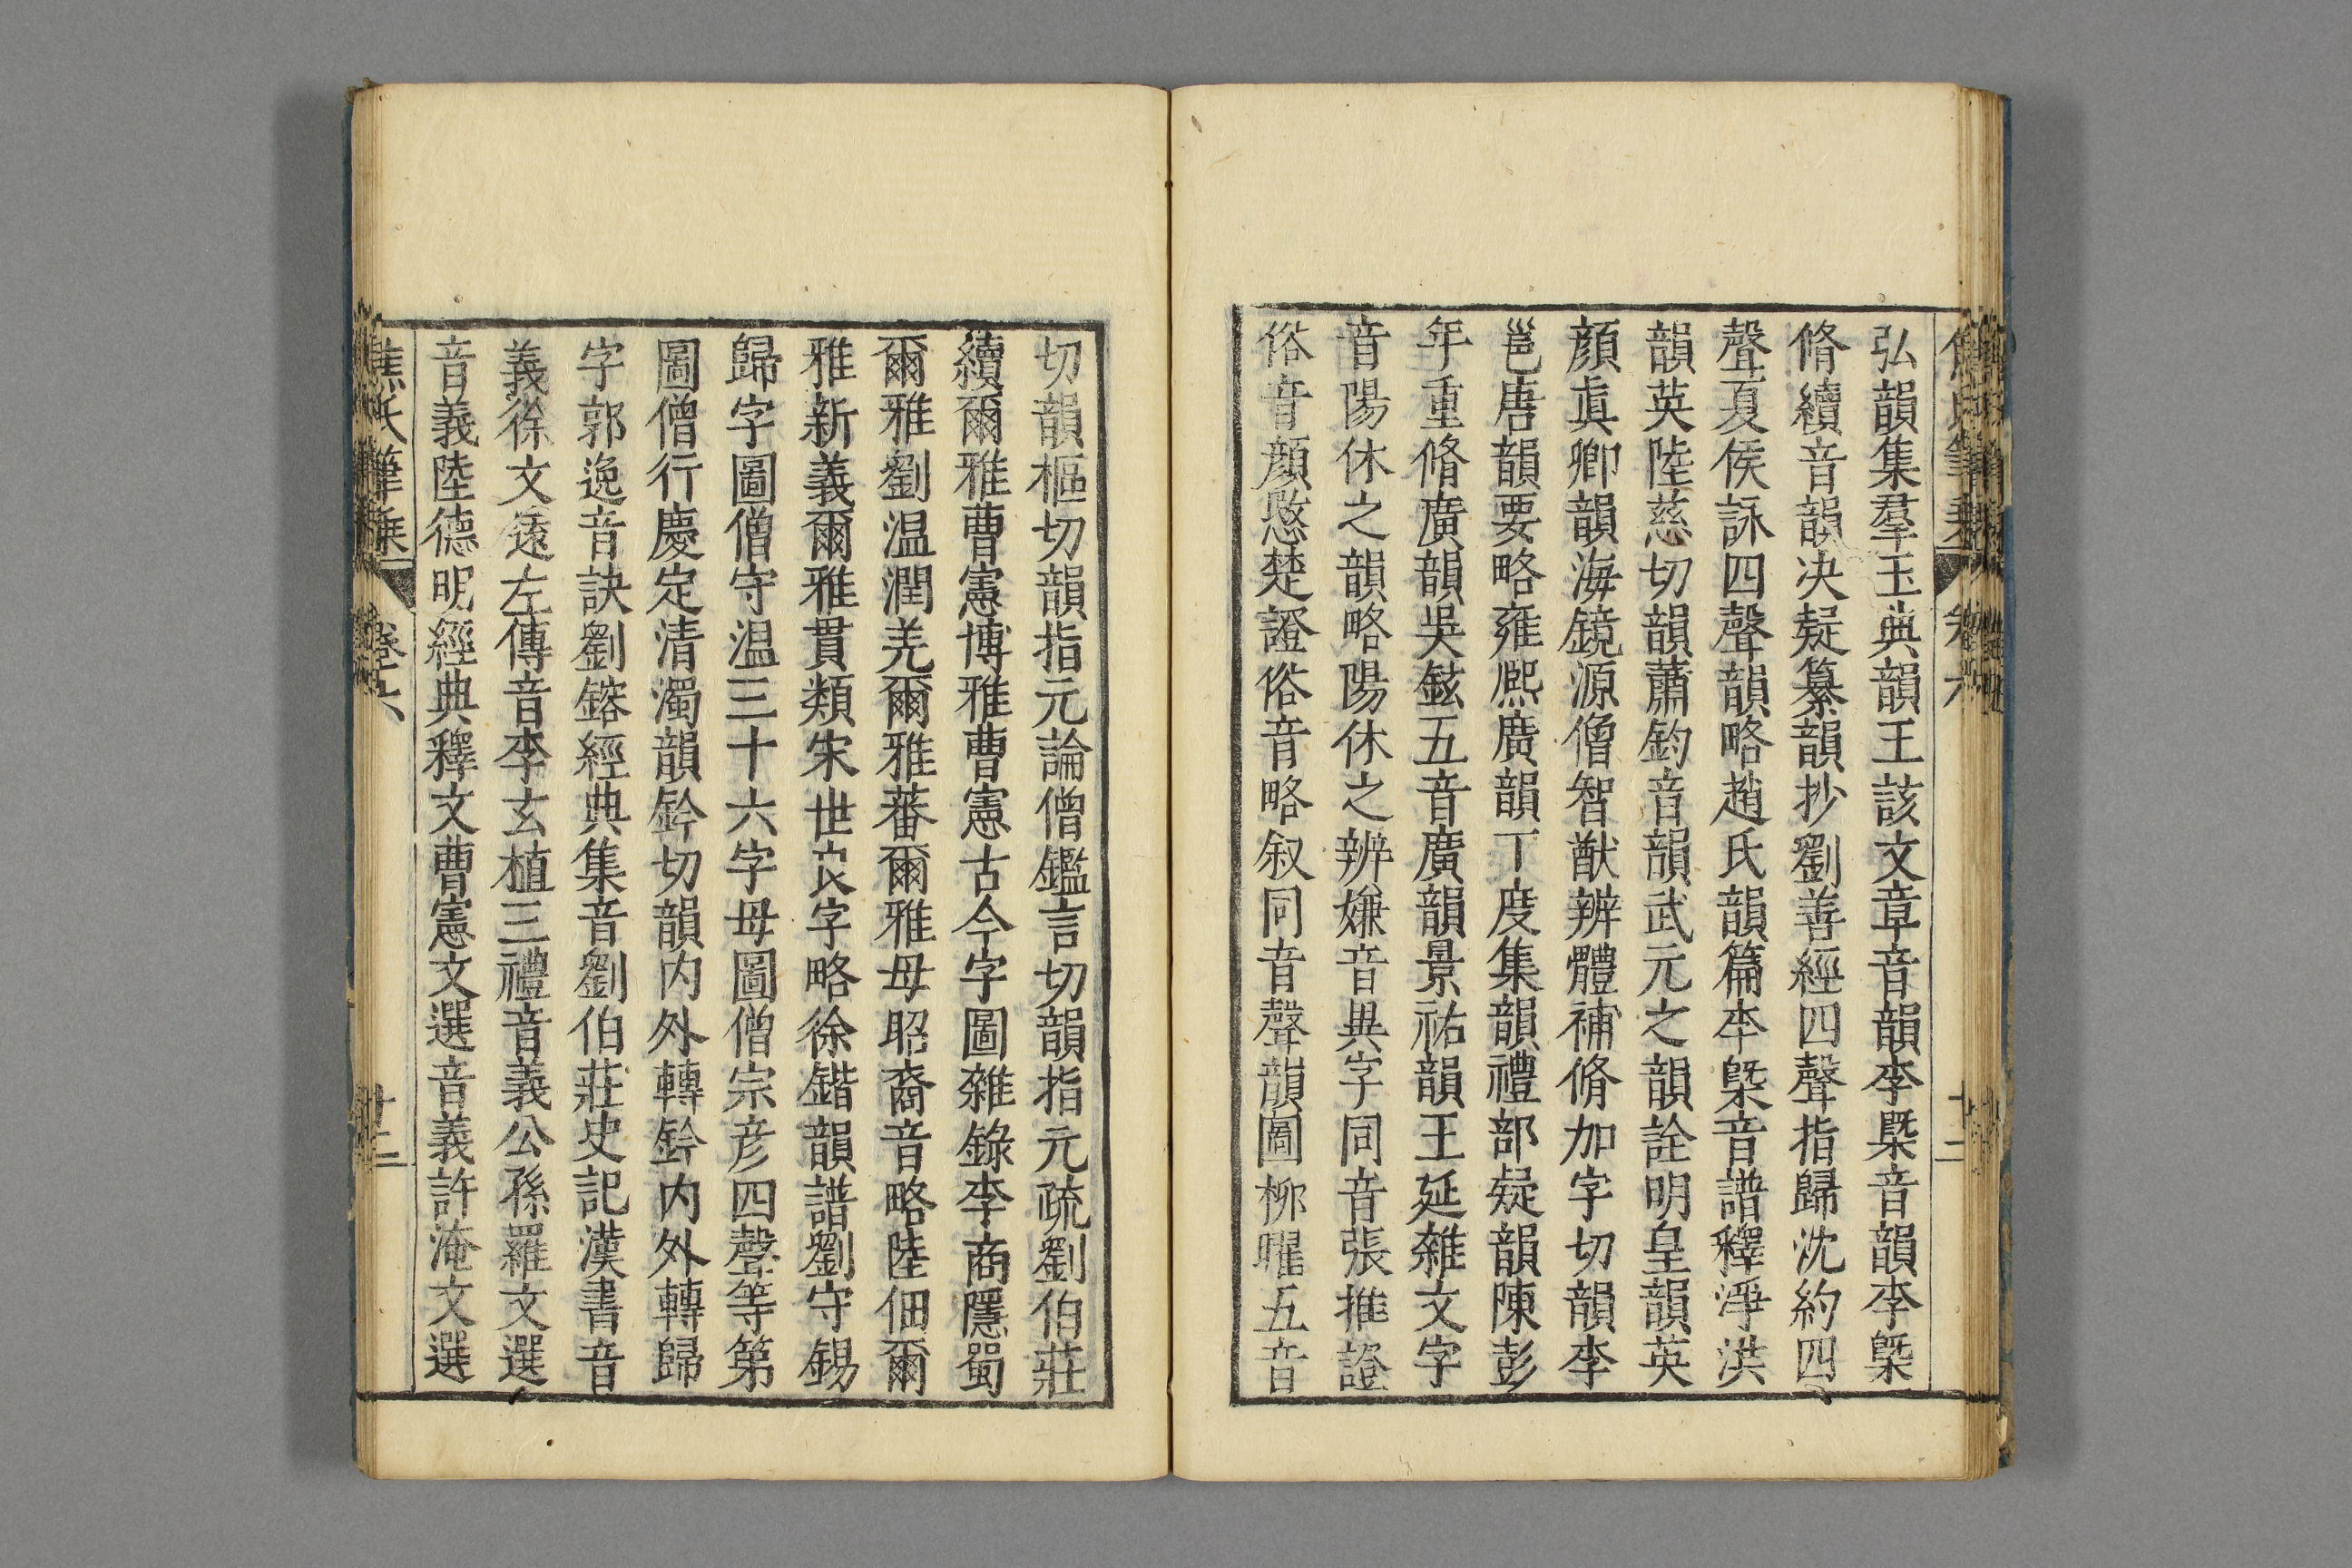 弘韻集羣玉典韻王該文章音韻李槩音韻李槩
脩續音韻决疑纂韻抄劉善經四聲指歸沈約四
聲夏侯詠四聲韻略趙氏韻篇李槩音譜釋淨洪
韻英陸慈切韻蕭鈞音韻武元之韻詮明皇韻英
顔眞卿韻海鏡源僧智猷辨體補脩加字切韻李
邕唐韻要略雍熈廣韻丁度集韻禮部疑韻陳彭
年重脩廣韻吳鉉五音廣韻景祐韻王延雜文字
音陽休之韻略陽休之辨嫌音異字同音張推證
俗音顔愍楚證俗音略叙同音聲韻圖桞曜五音
切韻樞切韻指元論僧鑑言切韻指元疏劉伯莊
續爾雅曹憲博雅曹憲古今字圖雜錄李商隱蜀
爾雅劉温潤羌爾雅蕃爾雅母昭裔音略陸佃爾
雅新義爾雅貫類宋世良字略徐鍇韻譜劉守錫
歸字圖僧守温三十六字母圖僧宗彦四聲等第
圖僧行慶定清濁韻鈐切韻内外轉鈐内外轉歸
字郭逸音訣劉鎔經典集音劉伯莊史記漢書音
義徐文遠左傳音李玄植三禮音義公孫羅文選
音義陸德明經典釋文曹憲文選音義許淹文選
焦氏筆乗 卷六 廿二